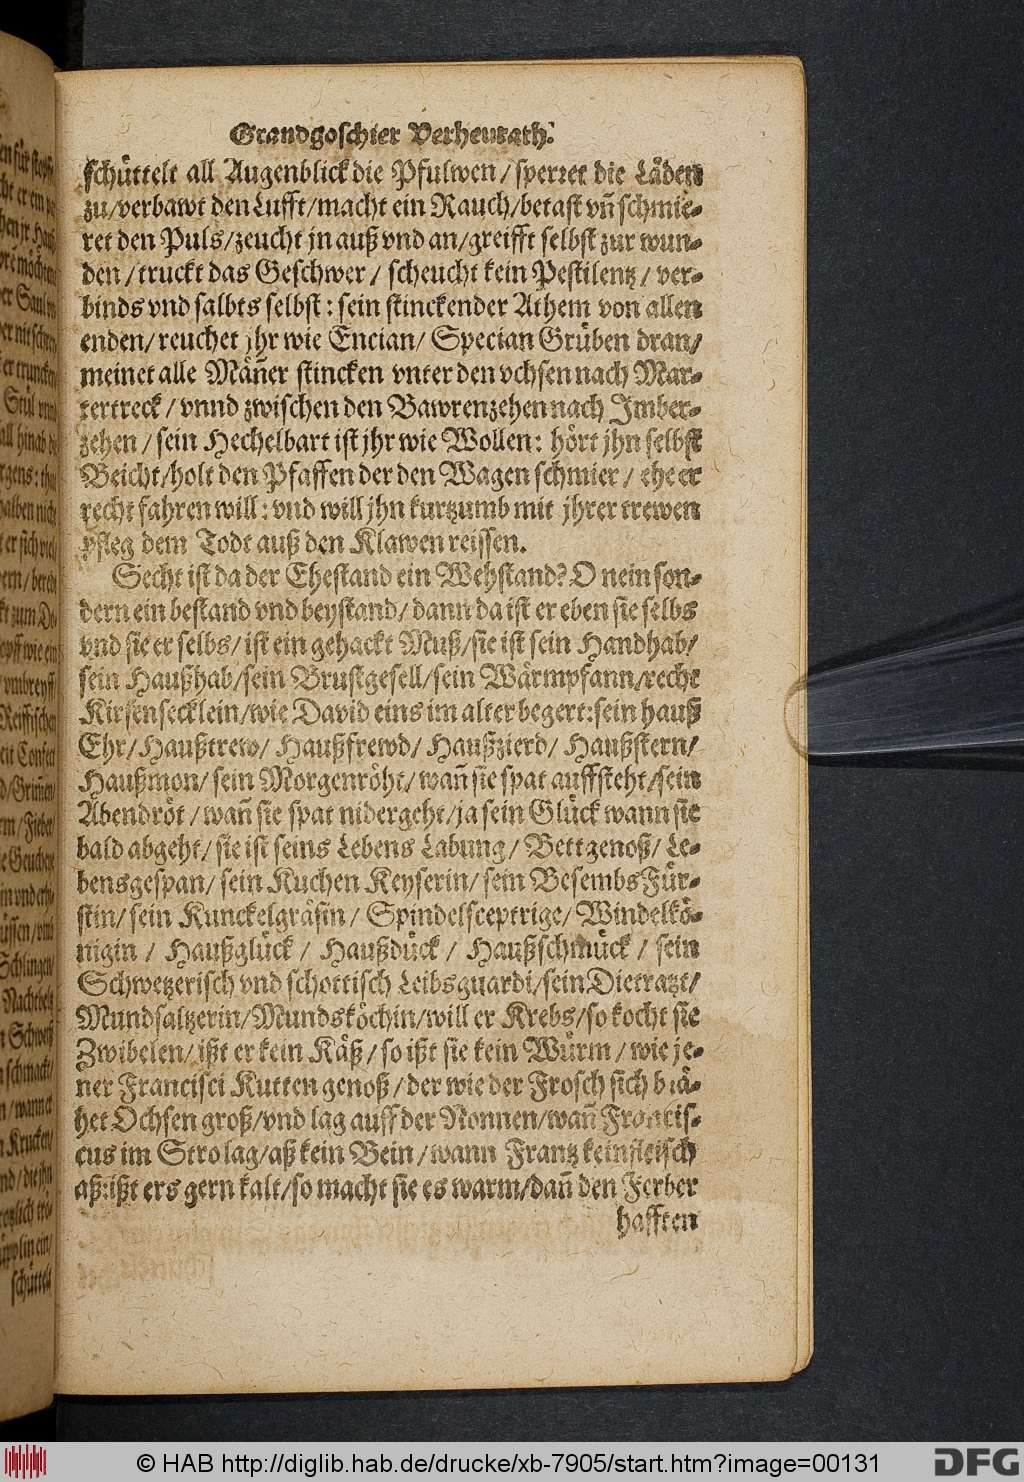 Grandgoschier Verheurath.
schüttelt all Augenblick die Pfulwen / sperret die Läden
zu/verbawt den Lufft/macht ein Rauch/betast vñ schmie-
ret den Puls/zeucht jn auß vnd an/greifft selbst zur wun-
den / truckt das Geschwer / scheucht kein Pestilentz / ver-
binds vnd salbts selbst : sein stinckender Athem von allen
enden/ reuchet jhr wie Encian/ Specian Grüben dran/
meinet alle Mäñer stincken vnter den vchsen nach Mar-
tertreck / vnnd zwischen den Bawrenzehen nach Imber-
zehen / sein Hechelbart ist jhr wie Wollen: hört jhn selbst
Beicht/holt den Pfaffen der den Wagen schmier / ehe er
recht fahren will : vnd will jhn kurtzumb mit jhrer trewen
pfleg dem Todt auß den Klawen reissen.
Secht ist da der Ehestand ein Wehstand? O nein son-
dern ein bestand vnd beystand/ dann da ist er eben sie selbs
vnd sie er selbs/ ist ein gehackt Muß/sie ist sein Handhab/
sein Haußhab/sein Brustgesell/sein Wärmpfann/recht
Kirsensecklein/wie David eins im alter begert:sein hauß
Ehr/Haußtrew/ Haußfrewd/ Haußzierd/ Haußstern/
Haußmon/ sein Morgenröht/ wañ sie spat auffsteht/sein
Abendröt / wañ sie spat nidergeht/ja sein Glück wann sie
bald abgeht/ sie ist seins Lebens Labung/ Bettgenoß/ Le-
bensgespan/ sein Kuchen Keyserin/ sein Besembs Für-
stin/ sein Kunckelgräfin / Spindelsceptrige/ Windelkö-
nigin / Haußglück / Haußdück / Haußschmuck / sein
Schwetzerisch vnd schottisch Leibsguardi/sein Dietratzt/
Mundsaltzerin/Mundsköchin/will er Krebs/so kocht sie
Zwibelen/ ißt er kein Käß / so ißt sie kein Würm / wie je-
ner Francisci Kutten genoß / der wie der Frosch sich blä-
het Ochsen groß/vnd lag auff der Nonnen/wañ Francis-
cus im Stro lag/aß kein Bein / wann Frantz kein fleisch
aß:ißt ers gern kalt/so macht sie es warm/dañ den Ferber
hafften
© HAB http://diglib.hab.de/drucke/xb-7905/start.htm?image=00131
DFG